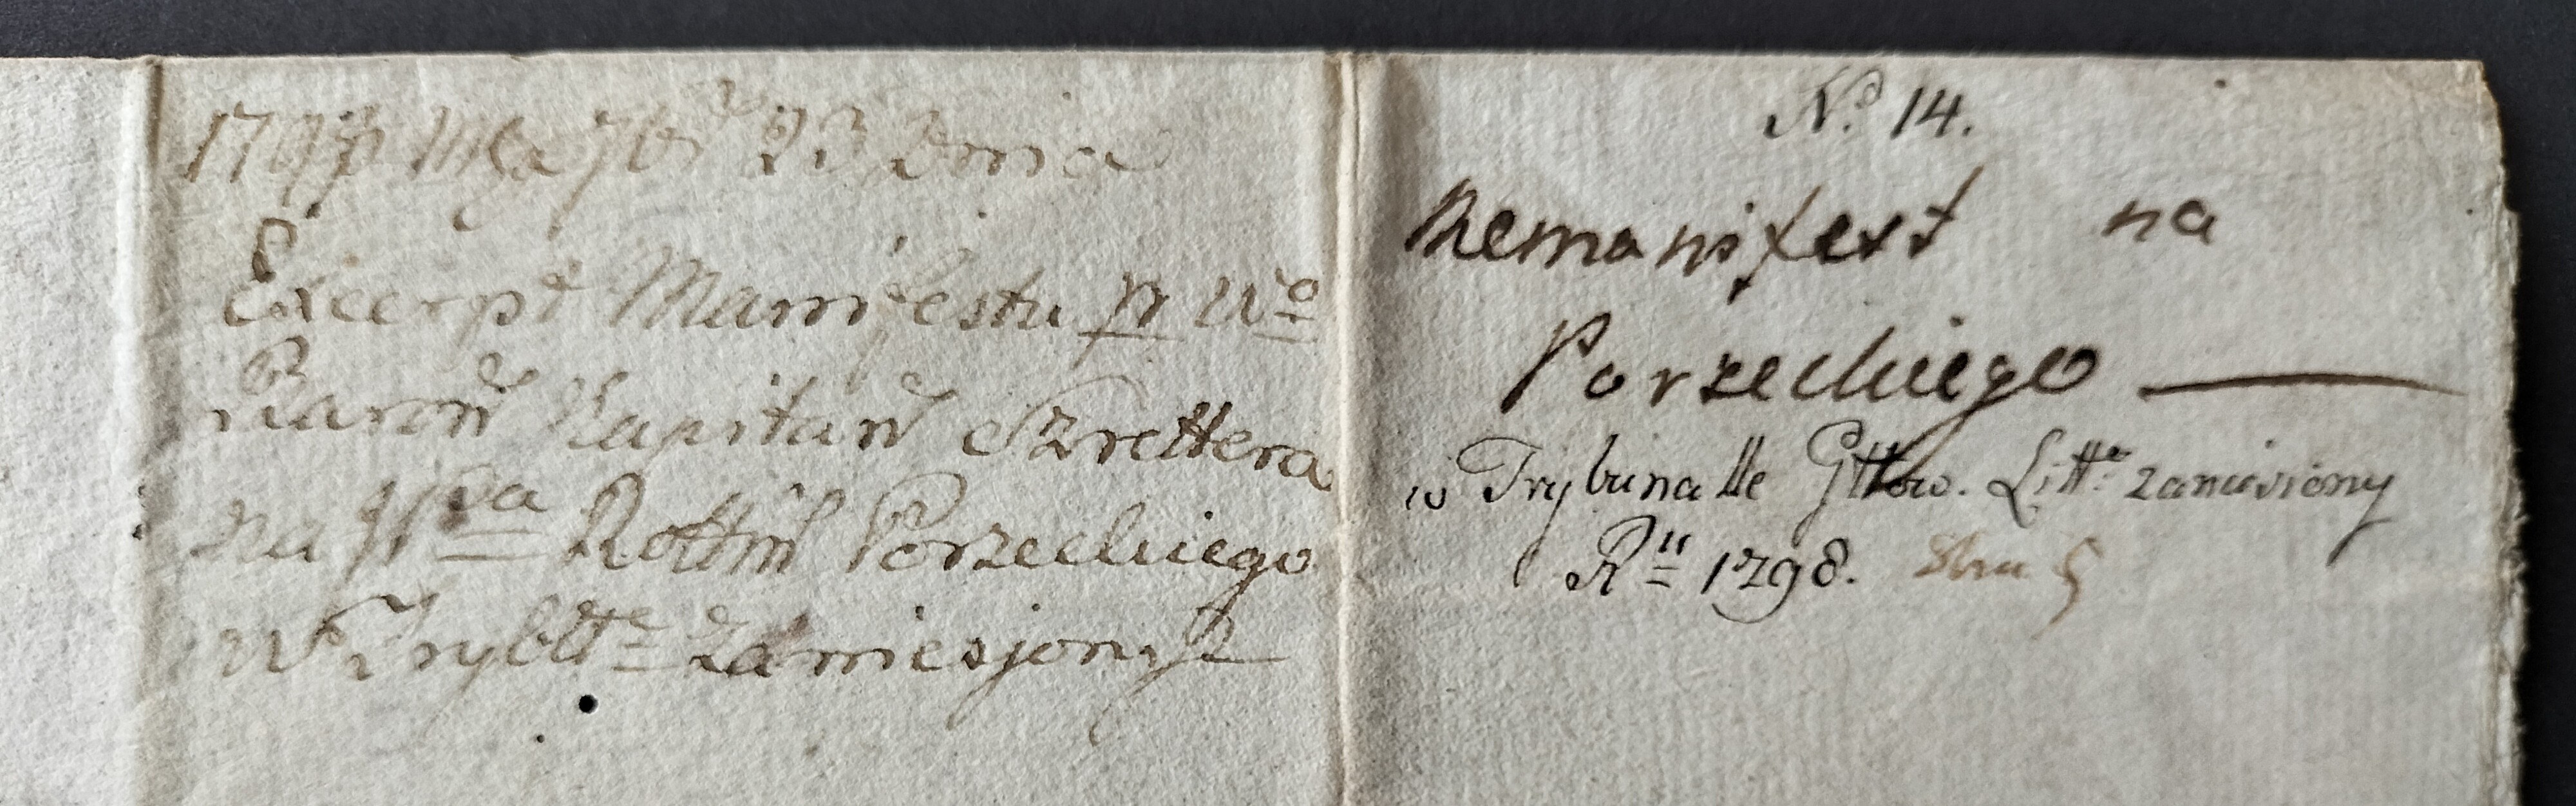 1798 Mca 7br 23 Dnia
Excerpt Manifestu pr Wo
Baron Kapitan Szrettera
na Wo Rottm Porzeckiego
w Trybltte zaniesjony
No 14.
Remanifest na
Porzeckiego —
w Trybunalle Gttow. Litt: zaniesiony
Ru 1798.